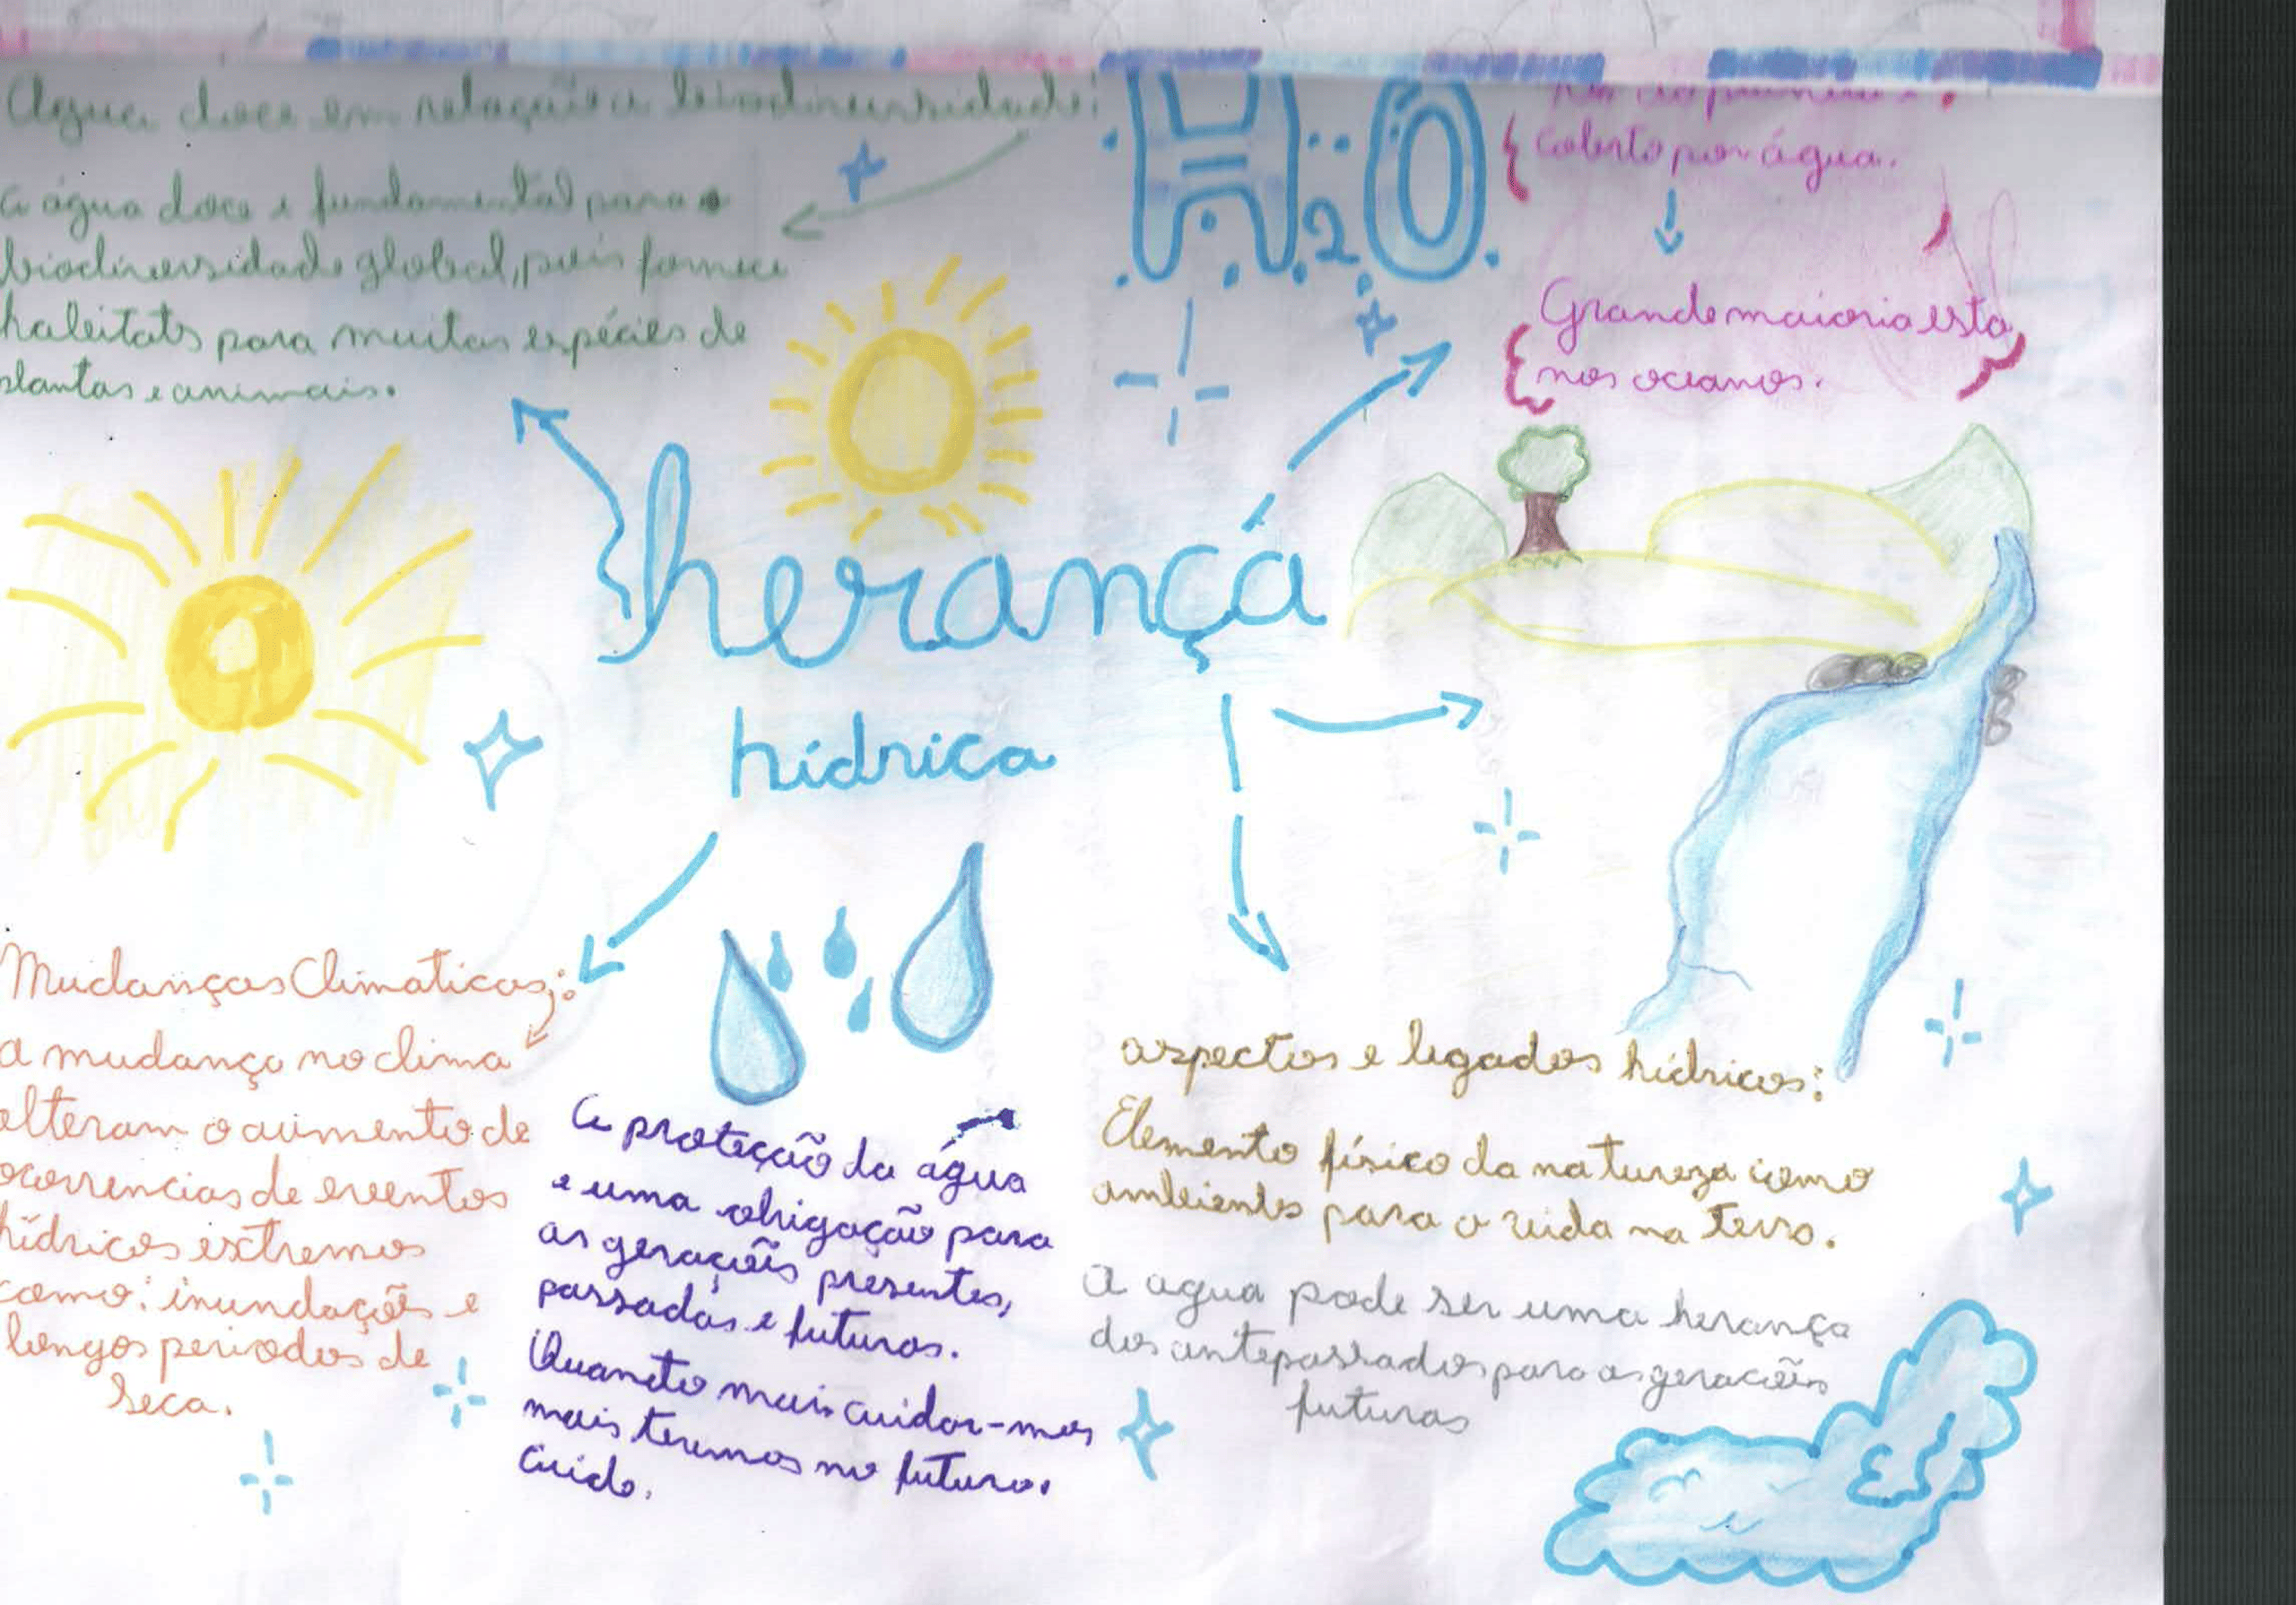 Água doce em relação a biodiversidade:
a água doce e fundamental para a
biodiversidade global, pois fornece
habitats para muitas espécies de
plantas e animais.
H2O
coberto por água.
Grande maioria esta
nos oceanos.
herançá
hídrica
Mudanças Climaticas:
a mudança no clima
alteram o aumento de
ocorrencias de eventos
hídricos extremos
como: inundações e
longos periodos de
seca.
a proteção da água
e uma obrigação para
as gerações presentes,
passadas e futuras.
Quanto mais cuidar-mos
mais teremos no futuro.
cuide.
aspectos e legados hídricos:
Elemento físico da natureza como
ambientes para a vida na terra.
A agua pode ser uma herança
dos antepassados para as gerações
futuras